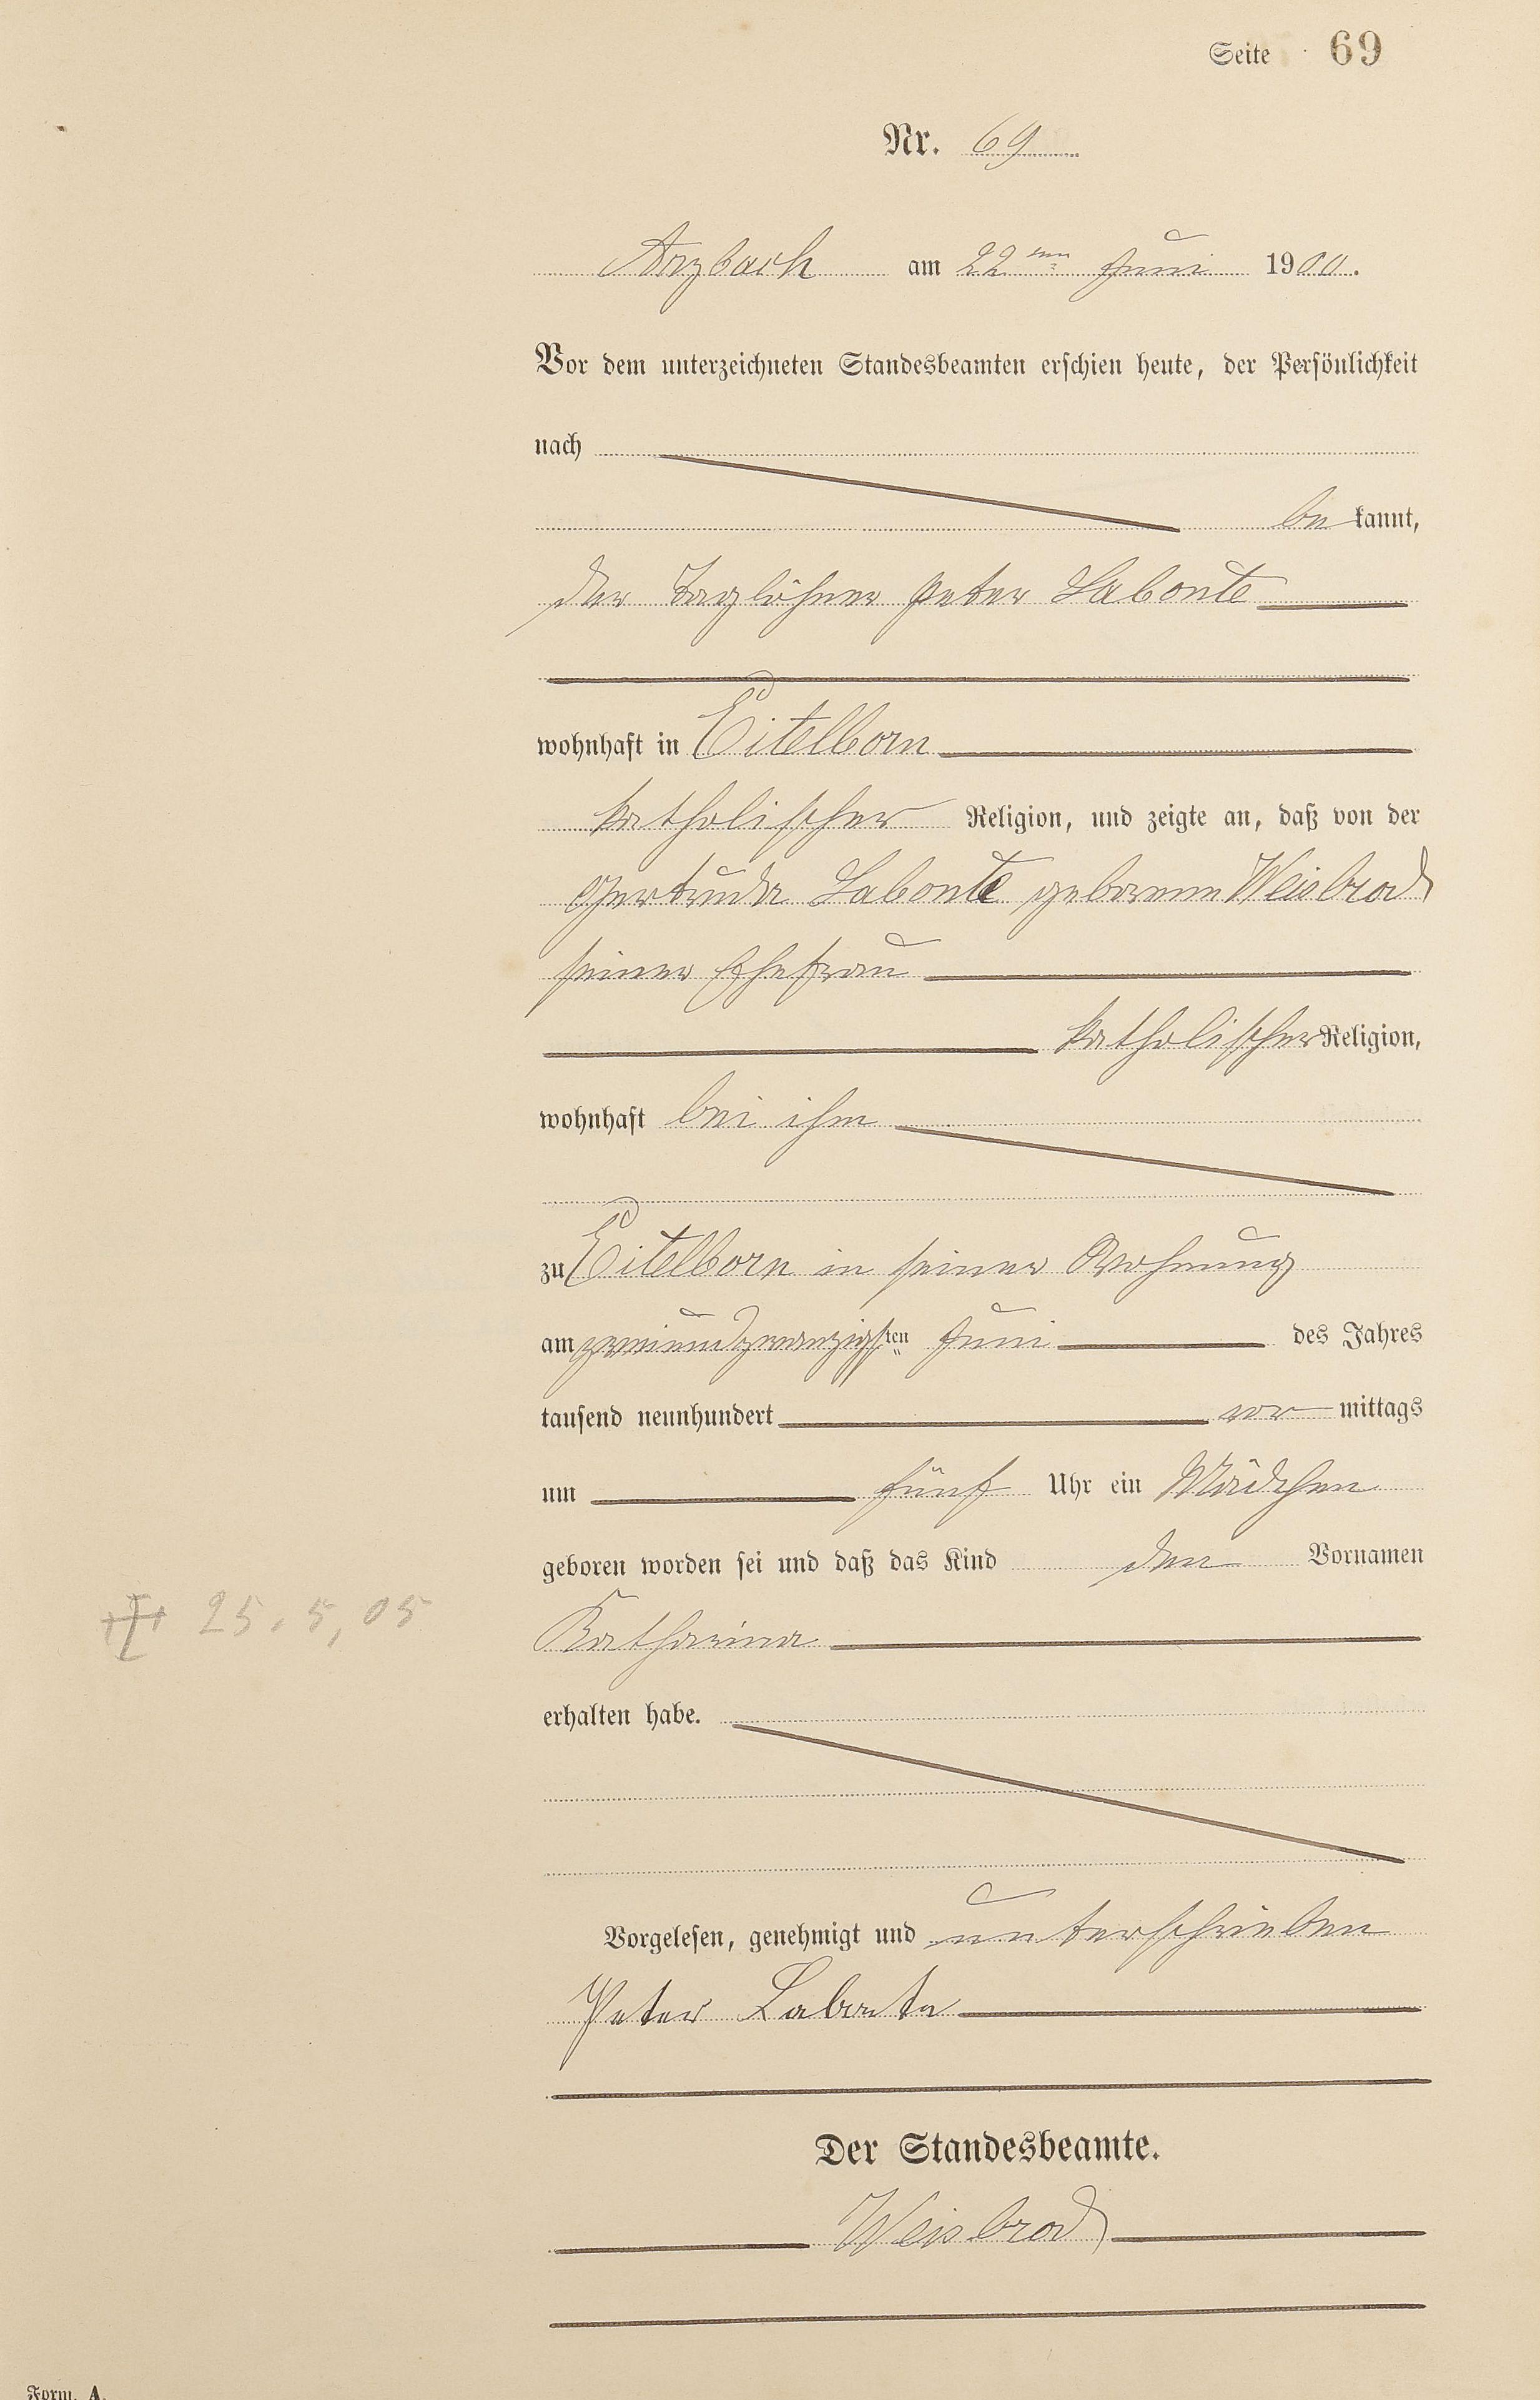 Seite 69
Nr. 69
Arzbach am 22ten Juni 1900.
Vor dem unterzeichneten Standesbeamten erschien heute, der Persönlichkeit
nach
be kannt,
der Taglöhner Peter Labonte
wohnhaft in Eitelborn
katholischer Religion, und zeigte an, daß von der
Gertrude Labonte geborene Weisbrod
seiner Ehefrau
katholischer Religion,
wohnhaft bei ihm
zu Eitelborn in seiner Wohnung
am zweiundzwanzigsten ten Juni des Jahres
tausend neunhundert vor mittags
um fünf Uhr ein Mädchen
geboren worden sei und daß das Kind den Vornamen
25.5,05
Katharina
erhalten habe.
Vorgelesen, genehmigt und unterschrieben
Peter Labonte
Der Standesbeamte.
Weisbrod
Form. A.